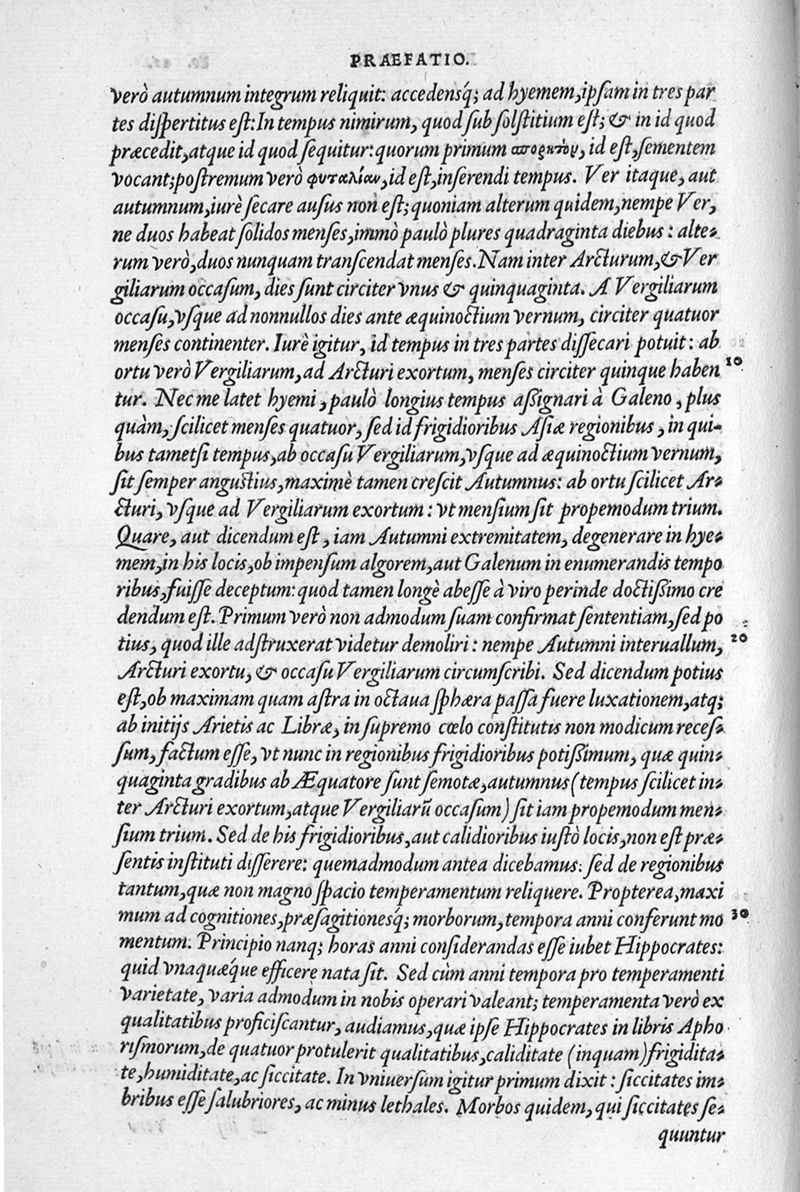 PRAEFATIO.
verò autumnum integrum reliquit: accedensq́; ad hyemem, ipſam in tres par
tes diſpertitus eſt: In tempus nimirum, quod ſub ſolſtitium eſt; & in id quod
præcedit, atque id quod ſequitur: quorum primum σπορητὸν, id eſt, ſementem
vocant; poſtremum verò φυταλίαν, id eſt, inſerendi tempus. Ver itaque, aut
autumnum, iurè ſecare auſus non eſt; quoniam alterum quidem, nempe Ver,
ne duos habeat ſolidos menſes, immò paulò plures quadraginta diebus: alte-
rum verò, duos nunquam tranſcendat menſes. Nam inter Arcturum, & Ver
giliarum occaſum, dies ſunt circiter vnus & quinquaginta. A Vergiliarum
occaſu, vſque ad nonnullos dies ante æquinoctium vernum, circiter quatuor
menſes continenter. Iurè igitur, id tempus in tres partes diſſecari potuit: ab
ortu verò Vergiliarum, ad Arcturi exortum, menſes circiter quinque haben 10
tur. Nec me latet hyemi, paulò longius tempus aßignari à Galeno, plus
quàm, ſcilicet menſes quatuor, ſed id frigidioribus Aſiæ regionibus, in qui-
bus tametſi tempus, ab occaſu Vergiliarum, vſque ad æquinoctium vernum,
ſit ſemper anguſtius, maximè tamen creſcit Autumnus: ab ortu ſcilicet Ar-
cturi, vſque ad Vergiliarum exortum: vt menſium ſit propemodum trium.
Quare, aut dicendum eſt, iam Autumni extremitatem, degenerare in hye-
mem, in his locis, ob impenſum algorem, aut Galenum in enumerandis tempo
ribus, fuiſſe deceptum: quod tamen longè abeſſe à viro perinde doctißimo cre
dendum eſt. Primum verò non admodum ſuam confirmat ſententiam, ſed po
tius, quod ille adſtruxerat videtur demoliri: nempe Autumni interuallum, 20
Arcturi exortu, & occaſu Vergiliarum circumſcribi. Sed dicendum potius
eſt, ob maximam quam aſtra in octaua ſphæra paſſa fuere luxationem, atq;
ab initijs Arietis ac Libræ, in ſupremo cœlo conſtitutis non modicum receſ-
ſum, factum eſſe, vt nunc in regionibus frigidioribus potißimum, quæ quin-
quaginta gradibus ab Æquatore ſunt ſemotæ, autumnus (tempus ſcilicet in-
ter Arcturi exortum, atque Vergiliarũ occaſum) ſit iam propemodum men-
ſium trium. Sed de his frigidioribus, aut calidioribus iuſtò locis, non eſt præ-
ſentis inſtituti diſſerere: quemadmodum antea dicebamus: ſed de regionibus
tantum, quæ non magno ſpacio temperamentum reliquere. Propterea, maxi
mum ad cognitiones, præſagitionesq́; morborum, tempora anni conferunt mo 30
mentum. Principio nanq; horas anni conſiderandas eſſe iubet Hippocrates:
quid vnaquæque efficere nata ſit. Sed cùm anni tempora pro temperamenti
varietate, varia admodum in nobis operari valeant; temperamenta verò ex
qualitatibus proficiſcantur, audiamus, quæ ipſe Hippocrates in libris Apho
riſmorum, de quatuor protulerit qualitatibus, caliditate (inquam) frigidita-
te, humiditate, ac ſiccitate. In vniuerſum igitur primum dixit: ſiccitates im-
bribus eſſe ſalubriores, ac minus lethales. Morbos quidem, qui ſiccitates ſe-
quuntur